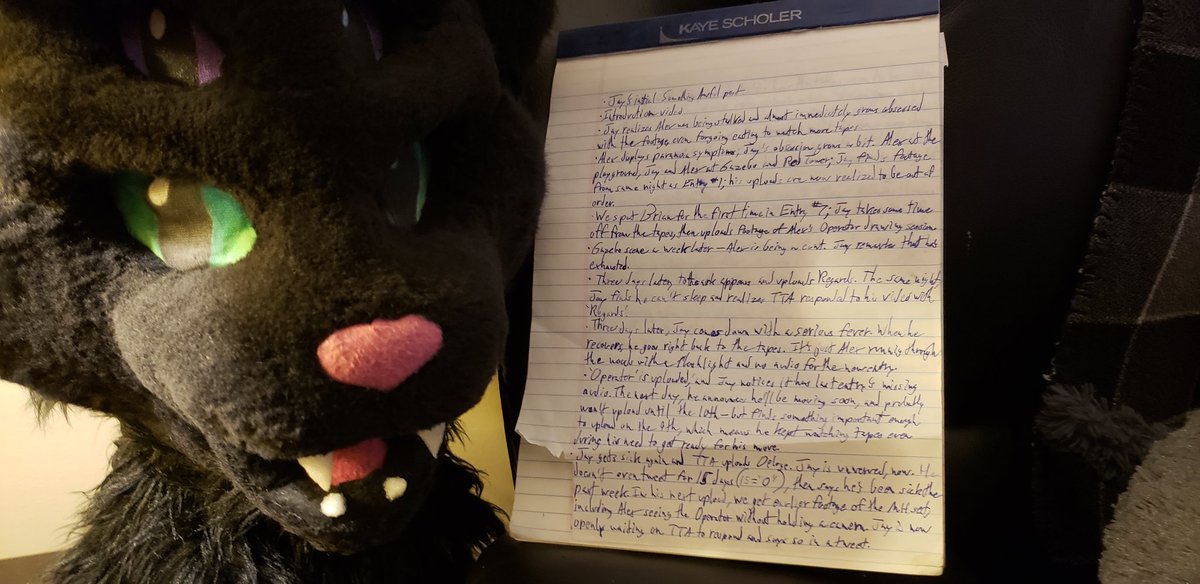 KAYE SCHOLER
· Jay's initial Something Awful post
· Introduction video
· Jay realizes Alex was being stalked and almost immediately grows obsessed
with the footage, even forgoing eating to watch more tapes
· Alex displays paranoia symptoms; Jay's obsession grows a bit. Alex at the
playground, Jay and Alex at Gazebo and Red Tower; Jay finds footage
from same night as Entry #1; his uploads are now realized to be out of
order.
· We spot Brian for the first time in Entry #7; Jay takes some time
off from the tapes, then uploads footage of Alex's Operator drawing session
· Gazebo scene a week later – Alex is being a cunt. Jay remarks that he's
exhausted.
· Three days later, totheark appears and uploads Regards. The same night,
Jay finds he can't sleep and realizes TTA responded to his video with
'Regards'.
· Three days later, Jay comes down with a serious fever. When he
recovers, he goes right back to the tapes. It's just Alex running through
the woods with a flashlight and no audio for the new entry.
· 'Operator' is uploaded, and Jay notices it has last entry's missing
audio. The next day, he announces he'll be moving soon, and probably
won't upload until the 10th – but finds something important enough
to upload on the 9th, which means he kept watching tapes even
during his need to get ready for his move.
· Jay gets sick again and TTA uploads Deluge. Jay is unnerved, now. He
doesn't even tweet for 15 days (15 = "O"), then says he's been sick the
past week. In his next upload, we get earlier footage of the MH set,
including Alex seeing the Operator without holding a camera. Jay is now
openly waiting on TTA to respond and says so in a tweet.